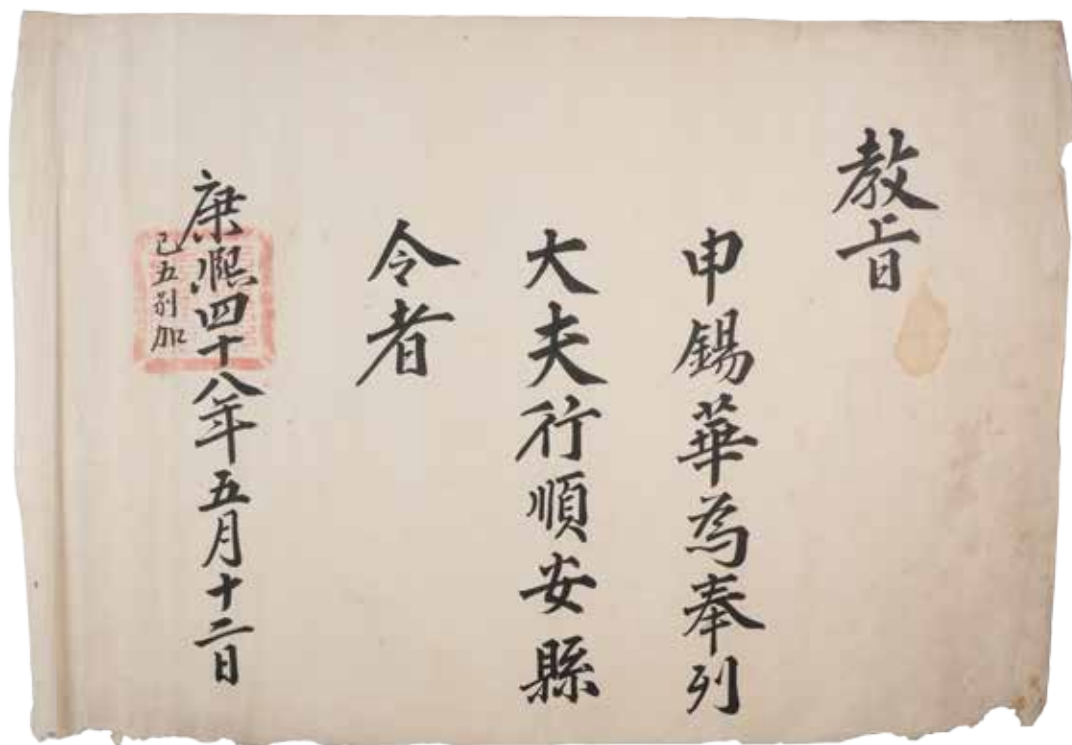 教旨
申錫華為奉列
大夫行順安縣
令者
康熙四十八年五月十二日
己丑別加